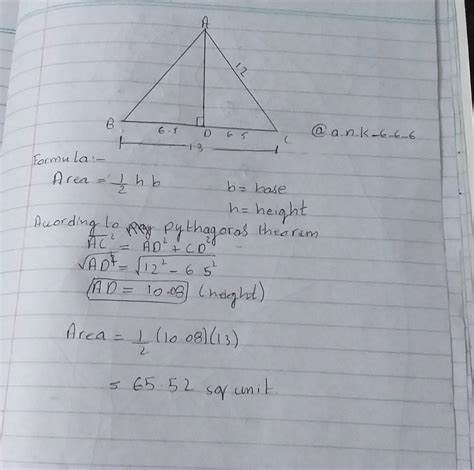 A
12
B
6.5
D
6.5
C
13
@a.n.k_6_6_6
Formula:-
Area = 1/2 h b
b = base
h = height
Auording to pythagoras theorem
AC² = AD² + CD²
√AD² = √12² - 6.5²
AD = 10.08 (height)
Area = 1/2 (10.08)(13)
= 65.52 sq unit